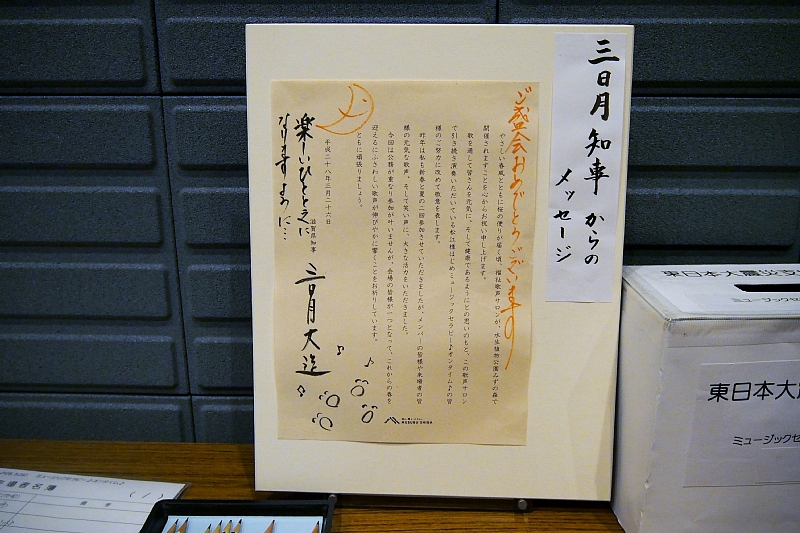 三日月知事からの
メッセージ
ご盛会おめでとうございます
やさしい春風とともに桜の便りが届く頃、福祉歌声サロンが、水生植物公園みずの森で
開催されますことを心からお祝い申し上げます。
歌を通して皆さんを元気に、そして健康であるようにとの思いのもと、この歌声サロン
で引き続き演奏いただいている松江様はじめミュージックセラピー♪オンタイム♪の皆
様のご努力に改めて敬意を表します。
昨年は私も新春と夏の二回参加させていただきましたが、メンバーの皆様や来場者の皆
様の元気な歌声、そして笑い声に、大きな活力をいただきました。
今回は公務が重なり参加が叶いませんが、会場の皆様が一つとなって、これからの春を
迎えるにふさわしい歌声が伸びやかに響くことをお祈りしています。
ともに頑張りましょう。
平成二十八年三月二十六日
滋賀県知事
三日月大造
楽しいひとときに
なりますように…
MUSUBU SHIGA
東日本大震災支
ミュージックセ
東日本大
ミュージックセ